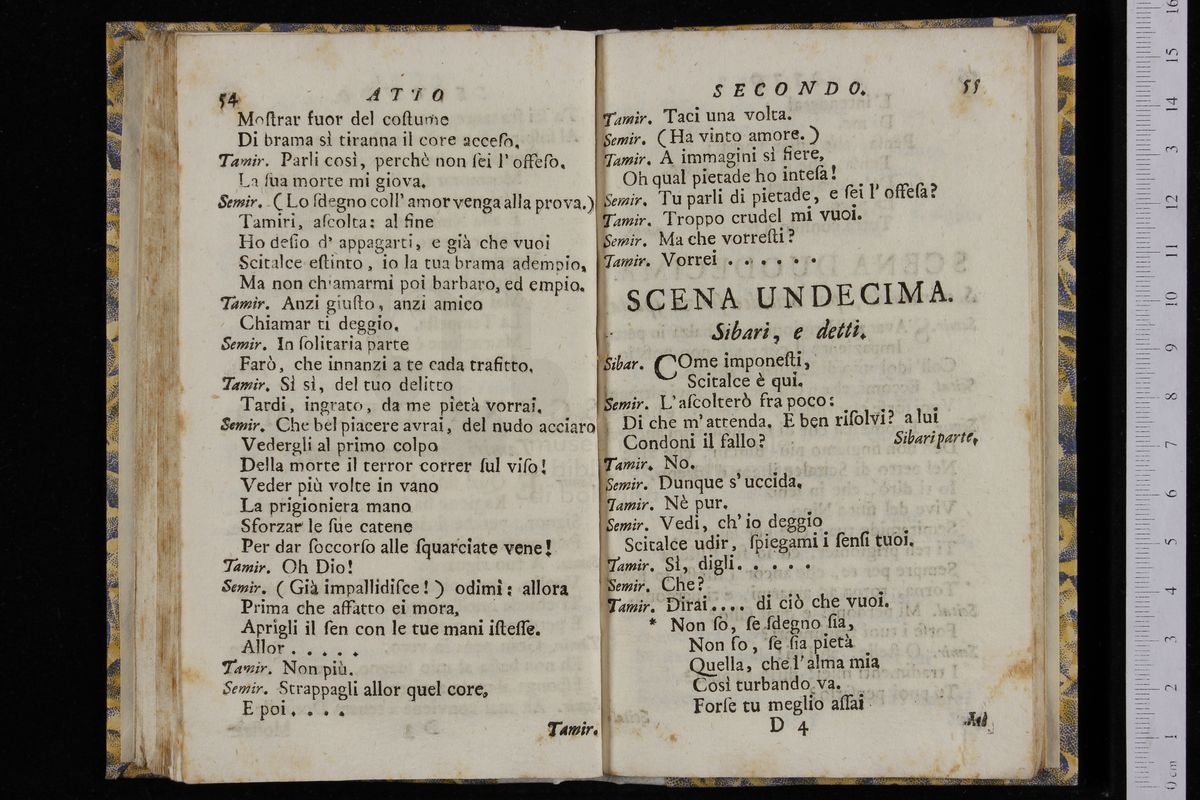 54 ATTO
Moſtrar fuor del coſtume
Di brama sì tiranna il core acceſo.
Tamir. Parli così, perchè non ſei l' offeſo.
La ſua morte mi giova.
Semir. (Lo ſdegno coll' amor venga alla prova.)
Tamiri, aſcolta: al fine
Ho deſio d' appagarti, e già che vuoi
Scitalce eſtinto, io la tua brama adempio,
Ma non chiamarmi poi barbaro, ed empio.
Tamir. Anzi giuſto, anzi amico
Chiamar ti deggio.
Semir. In ſolitaria parte
Farò, che innanzi a te cada trafitto.
Tamir. Sì sì, del tuo delitto
Tardi, ingrato, da me pietà vorrai.
Semir. Che bel piacere avrai, del nudo acciaro
Vedergli al primo colpo
Della morte il terror correr ſul viſo!
Veder più volte in vano
La prigioniera mano
Sforzar le ſue catene
Per dar ſoccorſo alle ſquarciate vene!
Tamir. Oh Dio!
Semir. (Già impallidiſce!) odimi: allora
Prima che affatto ei mora,
Aprigli il ſen con le tue mani iſteſſe.
Allor . . . . .
Tamir. Non più.
Semir. Strappagli allor quel core,
E poi. . . .
Tamir.
SECONDO. 55
Tamir. Taci una volta.
Semir. (Ha vinto amore.)
Tamir. A immagini sì fiere,
Oh qual pietade ho inteſa!
Semir. Tu parli di pietade, e ſei l' offeſa?
Tamir. Troppo crudel mi vuoi.
Semir. Ma che vorreſti?
Tamir. Vorrei . . . . . .
SCENA UNDECIMA.
Sibari, e detti.
Sibar. COme imponeſti,
Scitalce è qui.
Semir. L'aſcolterò fra poco:
Di che m'attenda. E ben riſolvi? a lui
Condoni il fallo? Sibari parte.
Tamir. No.
Semir. Dunque s'uccida.
Tamir. Nè pur.
Semir. Vedi, ch'io deggio
Scitalce udir, ſpiegami i ſenſi tuoi.
Tamir. Sì, digli. . . . .
Semir. Che?
Tamir. Dirai.... di ciò che vuoi.
* Non ſo, ſe ſdegno ſia,
Non ſo, ſe ſia pietà
Quella, che l'alma mia
Così turbando va.
Forſe tu meglio aſſai
D 4